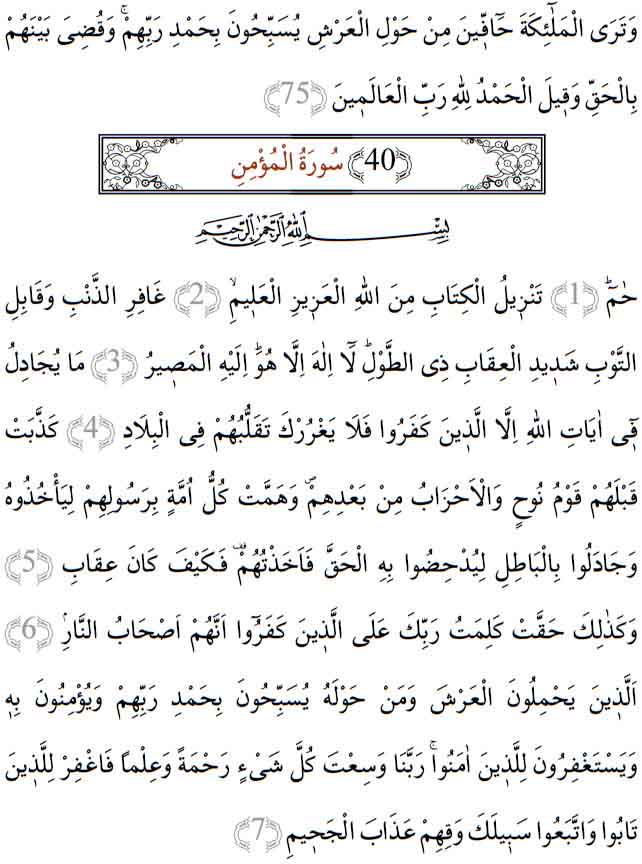 وَتَرَى الْمَلٰٓئِكَةَ حَٓافّ۪ينَ مِنْ حَوْلِ الْعَرْشِ يُسَبِّحُونَ بِحَمْدِ رَبِّهِمْۚ وَقُضِىَ بَيْنَهُمْ
بِالْحَقِّ وَق۪يلَ الْحَمْدُ لِلّٰهِ رَبِّ الْعَالَم۪ينَ ﴿75﴾
﴿40﴾ سُورَةُ الْمُؤْمِنِ
بِسْمِ اللّٰهِ الرَّحْمٰنِ الرَّحِيمِ
حٰمٓۜ ﴿1﴾ تَنْز۪يلُ الْكِتَابِ مِنَ اللّٰهِ الْعَز۪يزِ الْعَل۪يمِۙ ﴿2﴾ غَافِرِ الذَّنْبِ وَقَابِلِ
التَّوْبِ شَد۪يدِ الْعِقَابِ ذِى الطَّوْلِۜ لَٓا اِلٰهَ اِلَّا هُوَۜ اِلَيْهِ الْمَص۪يرُ ﴿3﴾ مَا يُجَادِلُ
ف۪ٓى اٰيَاتِ اللّٰهِ اِلَّا الَّذ۪ينَ كَفَرُوا فَلَا يَغْرُرْكَ تَقَلُّبُهُمْ فِى الْبِلَادِ ﴿4﴾ كَذَّبَتْ
قَبْلَهُمْ قَوْمُ نُوحٍ وَالْاَحْزَابُ مِنْ بَعْدِهِمْۖ وَهَمَّتْ كُلُّ اُمَّةٍ بِرَسُولِهِمْ لِيَأْخُذُوهُ
وَجَادَلُوا بِالْبَاطِلِ لِيُدْحِضُوا بِهِ الْحَقَّ فَاَخَذْتُهُمْ۠ فَكَيْفَ كَانَ عِقَابِ ﴿5﴾
وَكَذٰلِكَ حَقَّتْ كَلِمَتُ رَبِّكَ عَلَى الَّذ۪ينَ كَفَرُٓوا اَنَّهُمْ اَصْحَابُ النَّارِۢ ﴿6﴾
اَلَّذ۪ينَ يَحْمِلُونَ الْعَرْشَ وَمَنْ حَوْلَهُ يُسَبِّحُونَ بِحَمْدِ رَبِّهِمْ وَيُؤْمِنُونَ بِه۪
وَيَسْتَغْفِرُونَ لِلَّذ۪ينَ اٰمَنُواۚ رَبَّنَا وَسِعْتَ كُلَّ شَىْءٍ رَحْمَةً وَعِلْماً فَاغْفِرْ لِلَّذ۪ينَ
تَابُوا وَاتَّبَعُوا سَب۪يلَكَ وَقِهِمْ عَذَابَ الْجَح۪يمِ ﴿7﴾